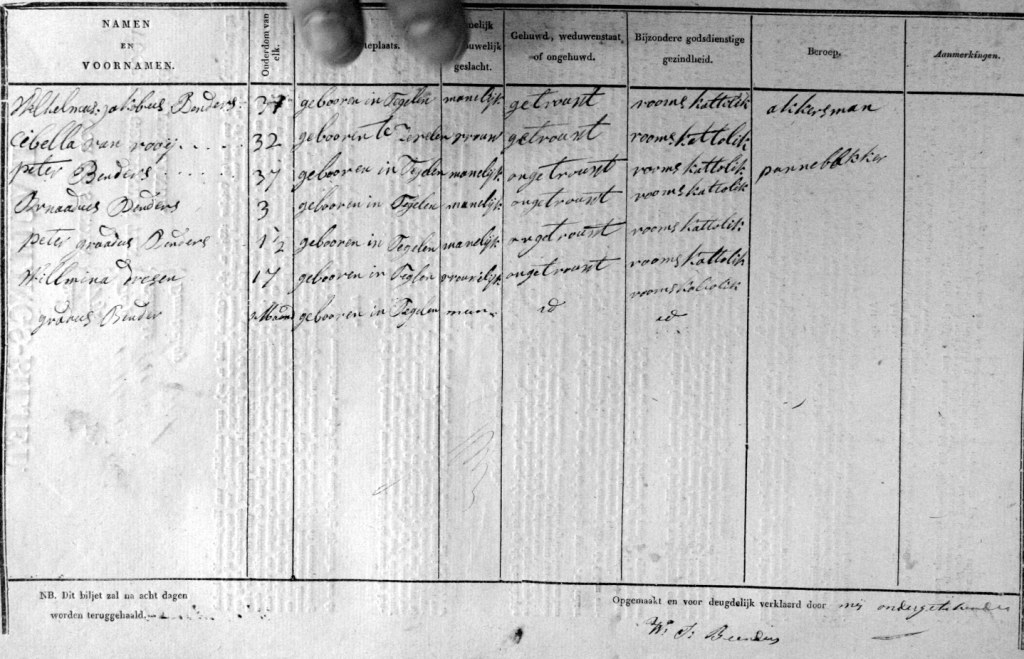 NAMEN EN VOORNAMEN. Ouderdom van elk. teplaats. nelijk ouwelijk geslacht. Gehuwd, weduwenstaat, of ongehuwd. Bijzondere godsdienstige gezindheid. Beroep. Aanmerkingen.
Wilhelmus jakobus Benders. 37 gebooren in Tegelen manelijk getrouwt rooms kattolik akkersman
Cibella van rooij 32 gebooren te vrouw getrouwt rooms kattolik
peter Benders 37 gebooren in Tegelen manelijk ongetrouwt rooms kattolik pannebakker
Benders 3 gebooren in Tegelen manelijk ongetrouwt rooms kattolik
peter graadus Benders 1½ gebooren in Tegelen manelijk ongetrouwt rooms kattolik
Willmina dresen 17 gebooren in Teglen vrouwelijk ongetrouwt rooms kattolik
rooms kattolik
graadus Bender maand gebooren in Tegelen man id id
NB. Dit biljet zal na acht dagen
worden teruggehaald.
Opgemaakt en voor deugdelijk verklaard door mij ondergetekende
Wm J: Beenders